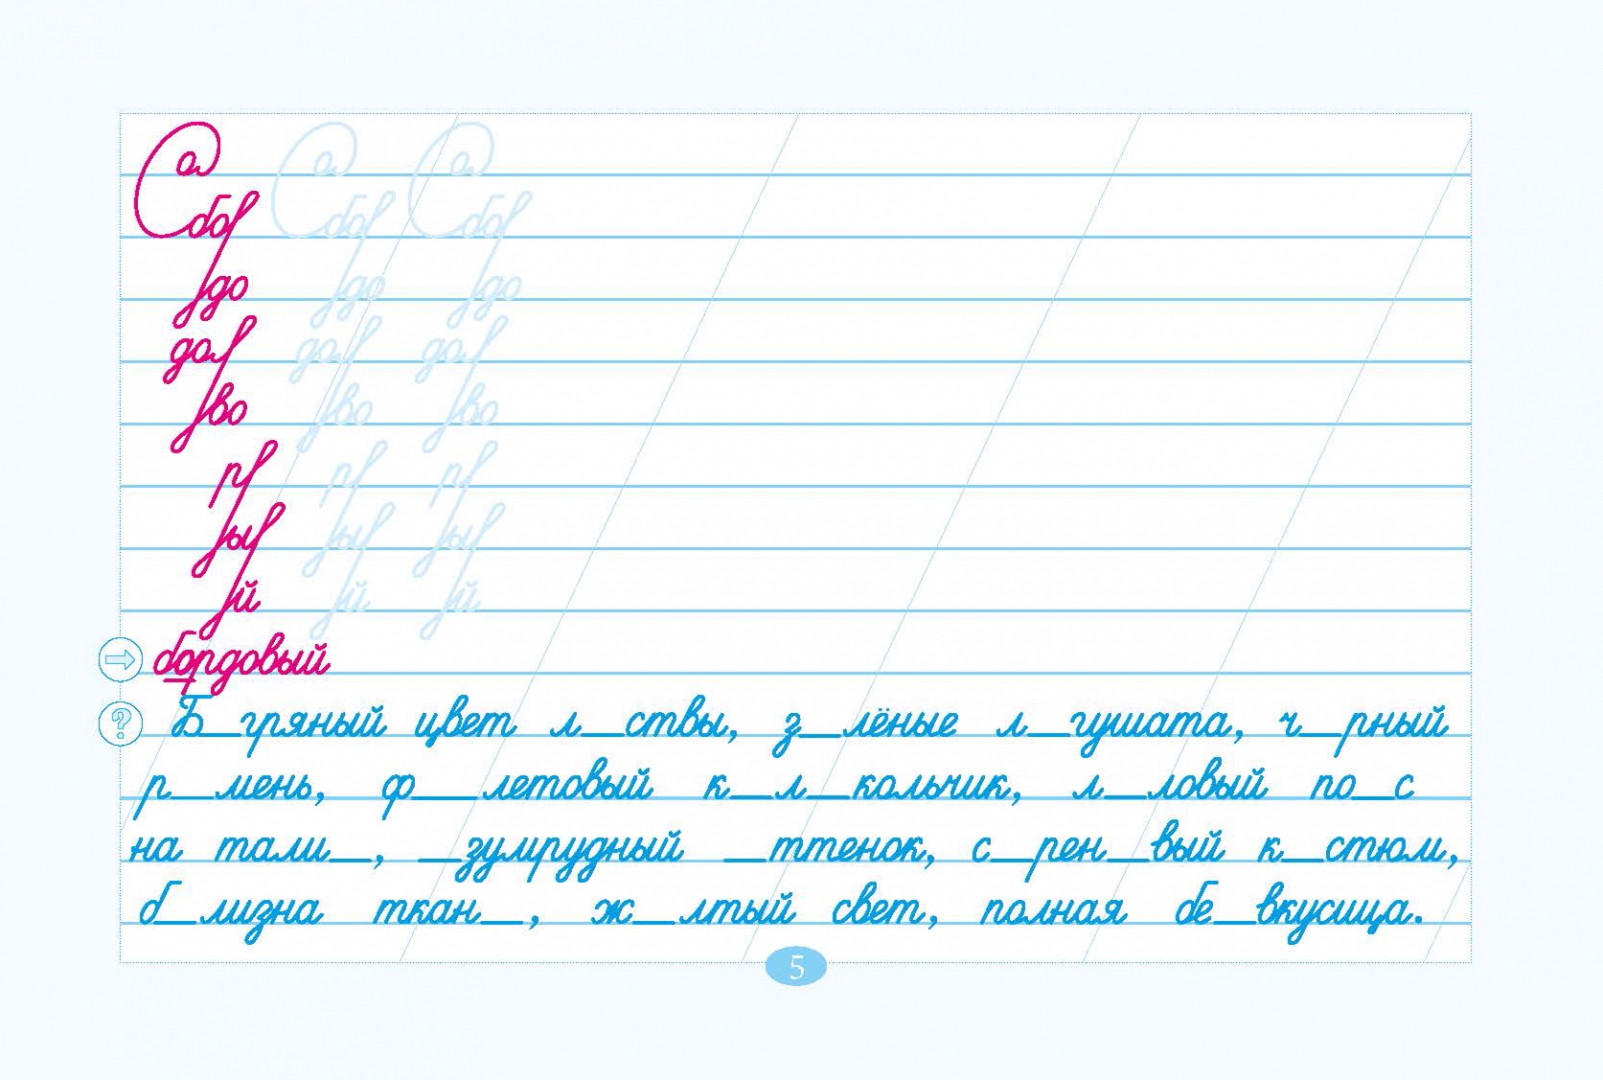 Са Са Са
бол бол бол
до до до
дол дол дол
во во во
рл рл рл
ыл ыл ыл
й й й
бордовый
Б_гряный цвет л_ствы, з_лёные л_гушата, ч_рный
р_мень, ф_летовый к_л_кольчик, л_ловый по_с
на тали_, _зумрудный _ттенок, с_рен_вый к_стюм,
б_лизна ткан_, ж_лтый свет, полная бе_вкусица.
5